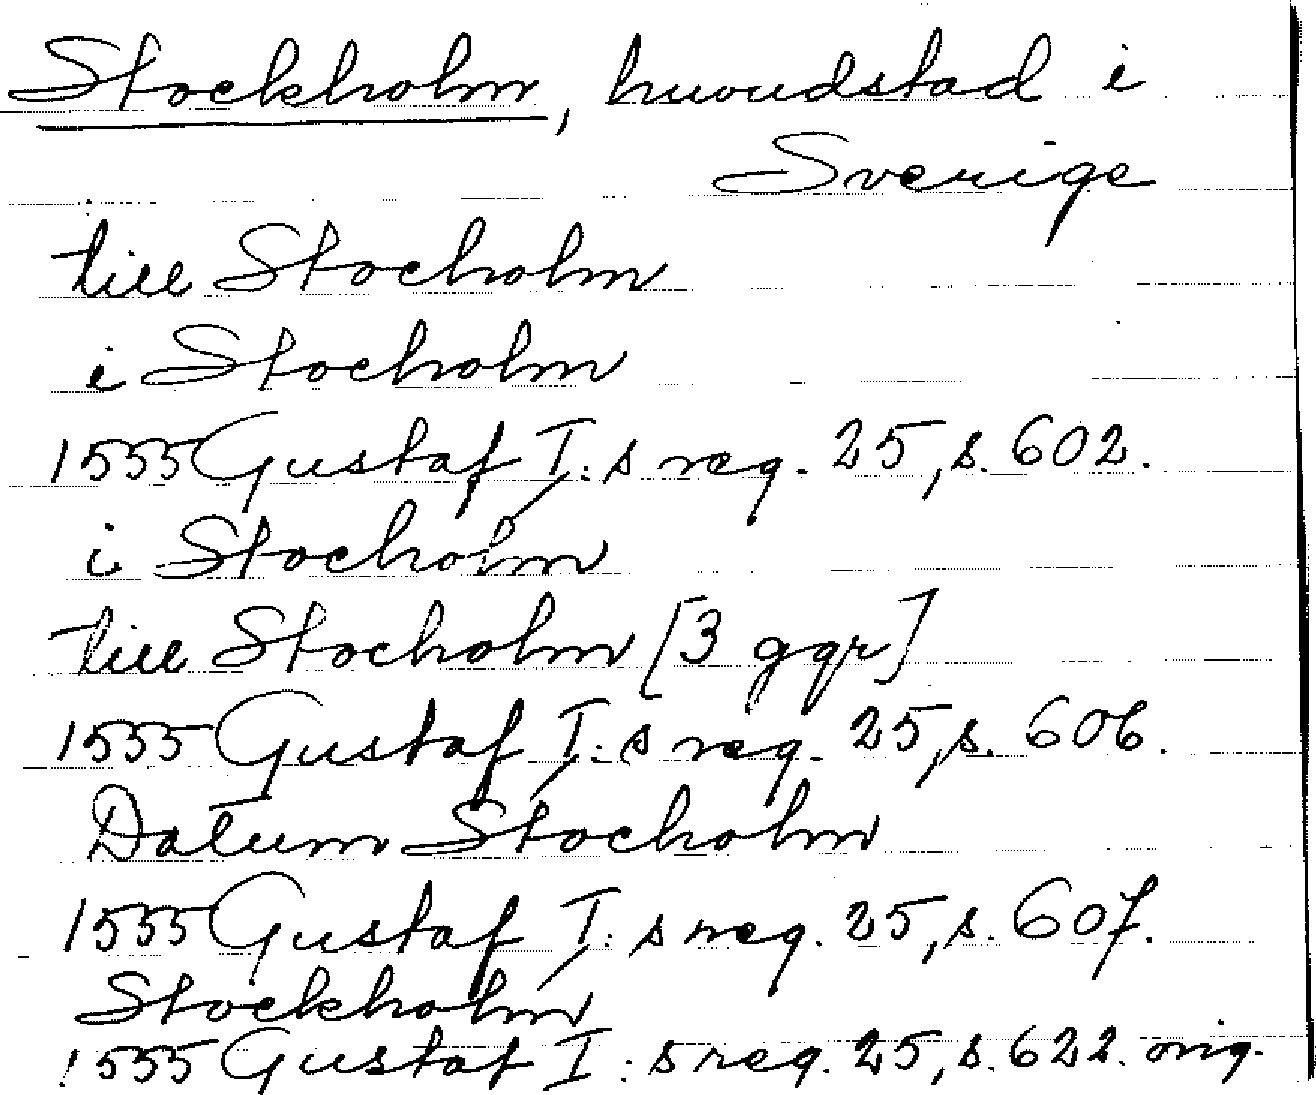 Stockholm, huvudstad i
Sverige
till Stocholm
i Stocholm
1555 Gustaf I:s reg. 25, s. 602.
i Stocholm
till Stocholm [3 ggr]
1555 Gustaf I:s reg. 25, s. 606.
Datum Stocholm
1555 Gustaf I:s reg. 25, s. 607.
Stockholm
1555 Gustaf I:s reg. 25, s. 622. orig.